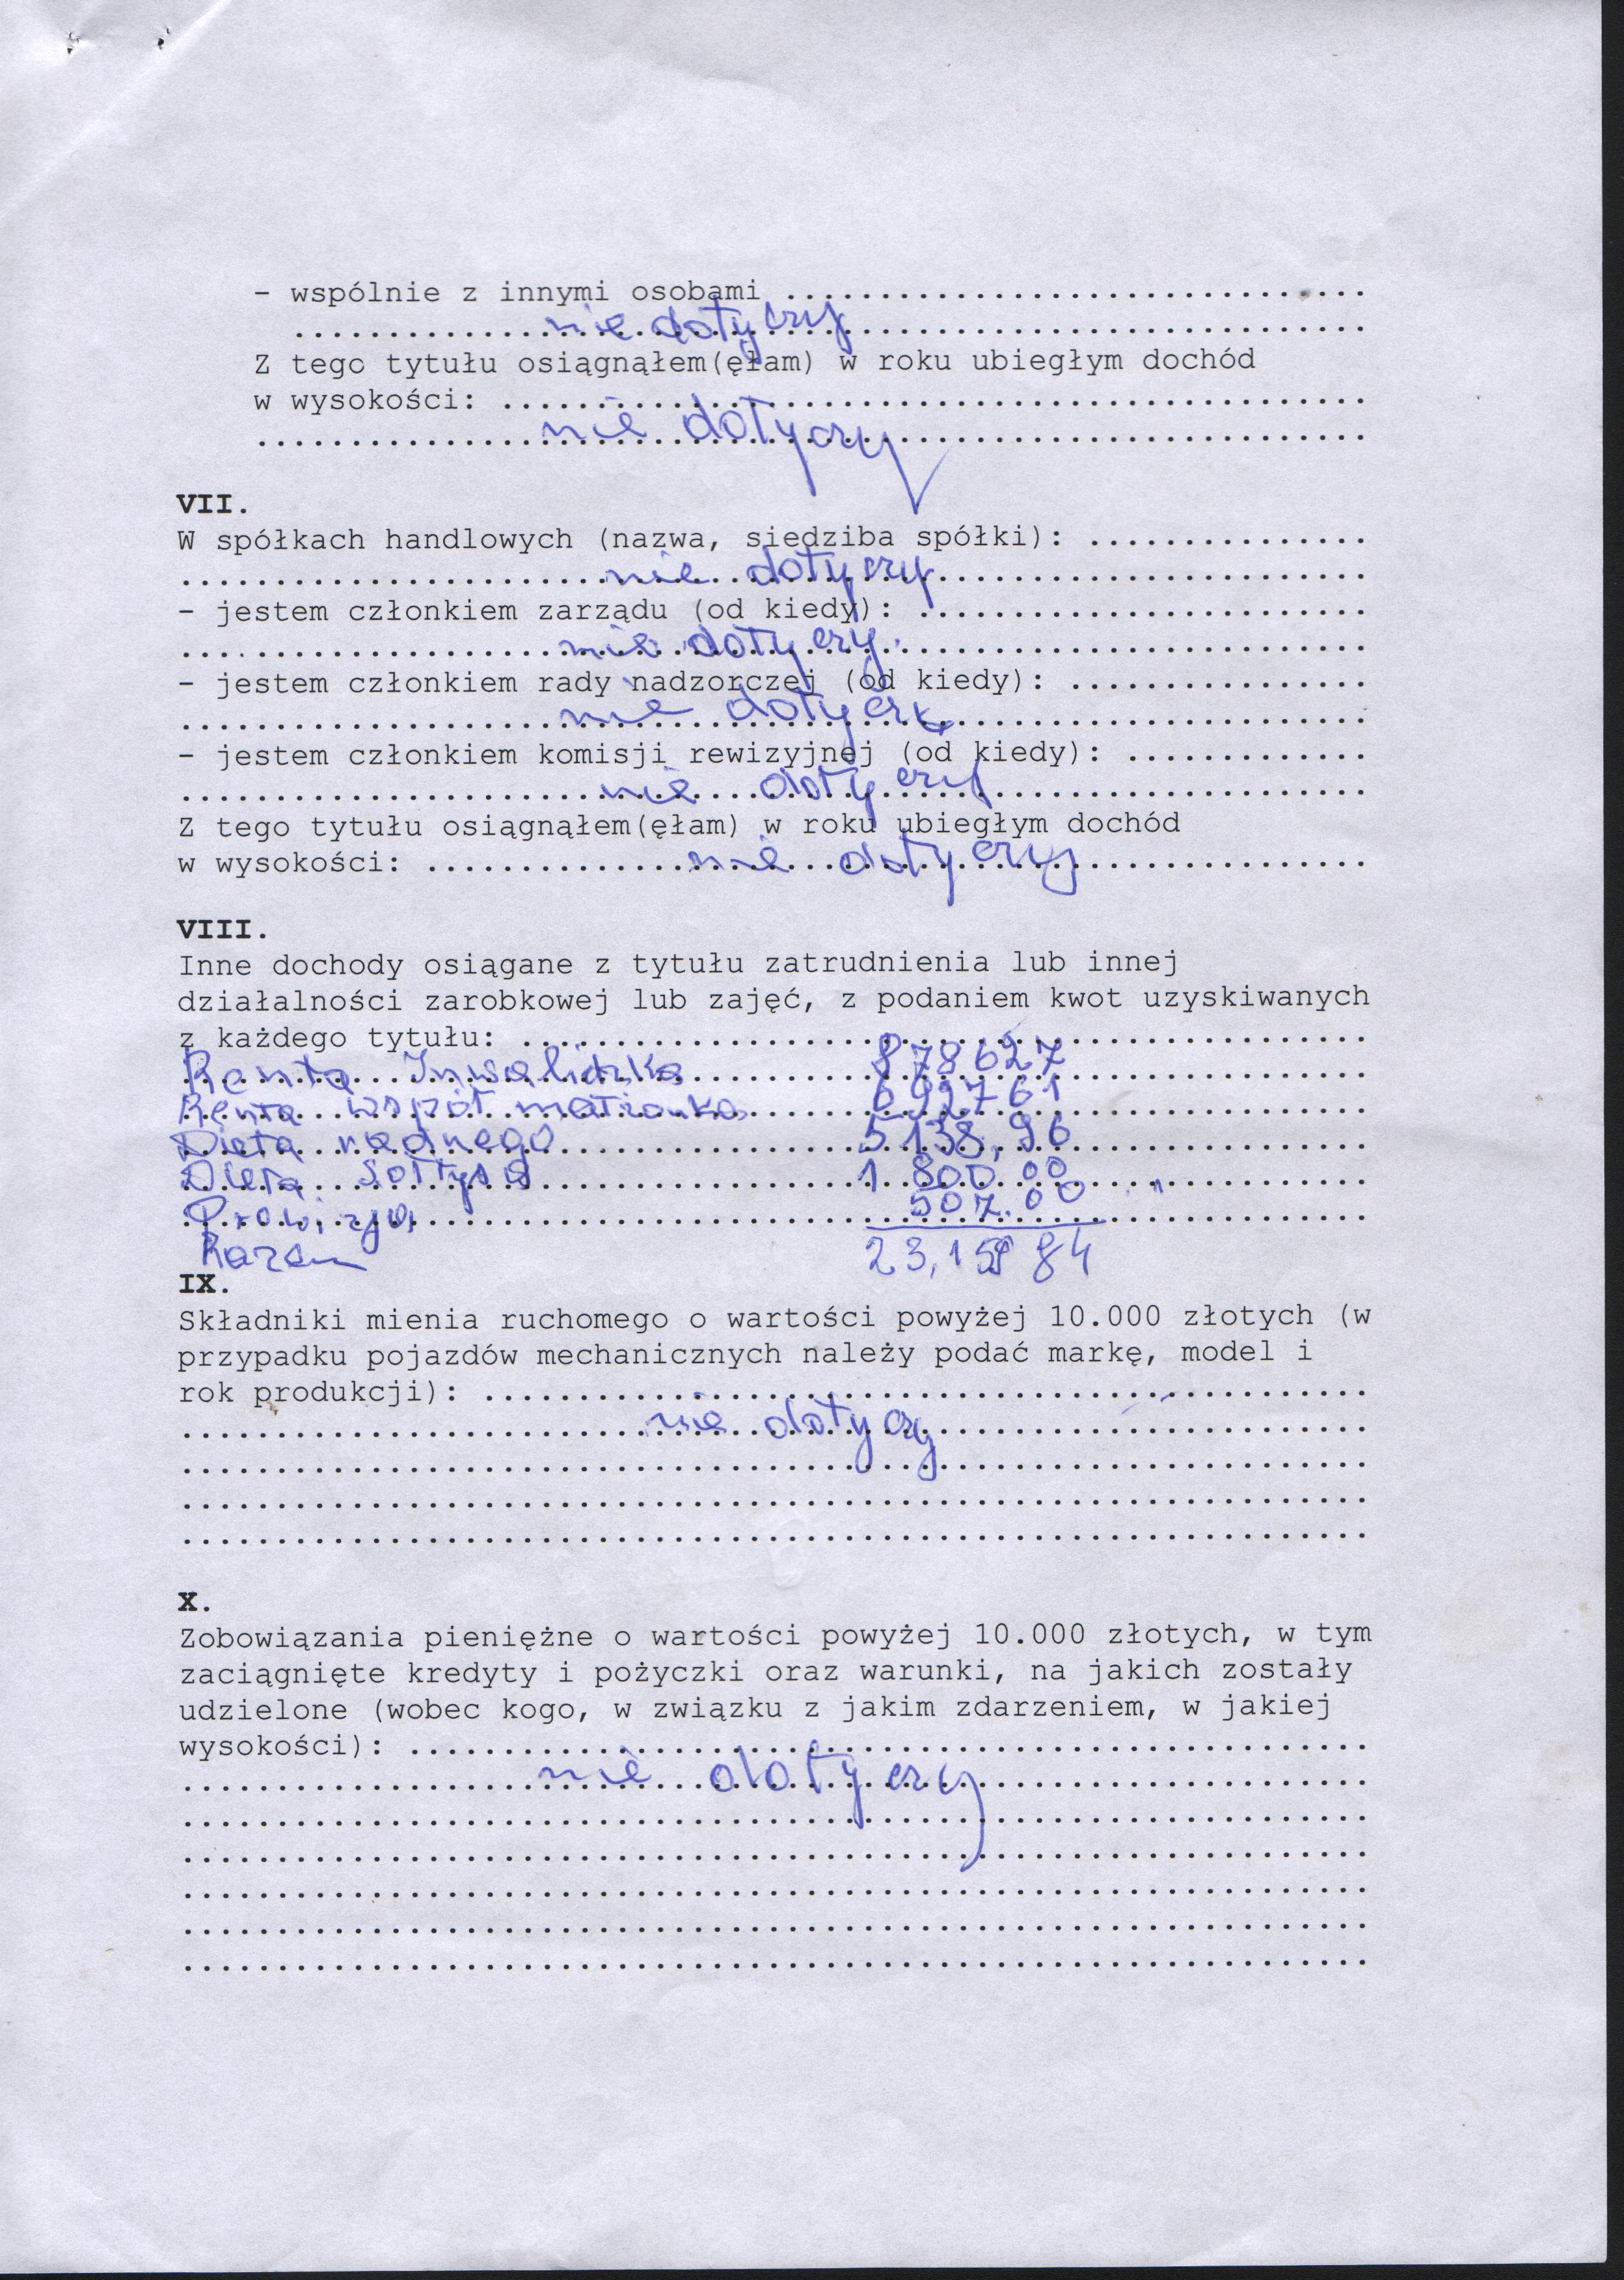 - wspólnie z innymi osobami ...............................
nie dotyczy
Z tego tytułu osiągnąłem(ęłam) w roku ubiegłym dochód
w wysokości: ..............................................
nie dotyczy
VII.
W spółkach handlowych (nazwa, siedziba spółki): ...............
nie dotyczy
- jestem członkiem zarządu (od kiedy): ........................
nie dotyczy.
- jestem członkiem rady nadzorczej (od kiedy): ................
nie dotyczy
- jestem członkiem komisji rewizyjnej (od kiedy): .............
nie dotyczy
Z tego tytułu osiągnąłem(ęłam) w roku ubiegłym dochód
w wysokości: nie dotyczy
VIII.
Inne dochody osiągane z tytułu zatrudnienia lub innej
działalności zarobkowej lub zajęć, z podaniem kwot uzyskiwanych
z każdego tytułu: .............................................
Renta Inwalidzka 878627
Renta współ małżonka 692761
Dieta radnego 5138,96
Dieta Sołtysa 1 800.00
Prowizja 507.00
Razem 23,159 84
IX.
Składniki mienia ruchomego o wartości powyżej 10.000 złotych (w
przypadku pojazdów mechanicznych należy podać markę, model i
rok produkcji): ...............................................
nie dotyczy
X.
Zobowiązania pieniężne o wartości powyżej 10.000 złotych, w tym
zaciągnięte kredyty i pożyczki oraz warunki, na jakich zostały
udzielone (wobec kogo, w związku z jakim zdarzeniem, w jakiej
wysokości): ...................................................
nie dotyczy